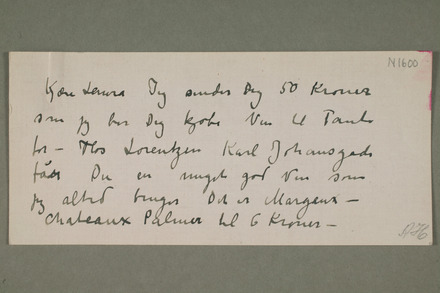 N 1600
Kjære Laura Jeg sender Dig 50 Kroner
som jeg ber Dig kjøbe Vin til Tante
for – Hos Lorentzen Karl Johansgade
fåes Du en meget god Vin som
jeg altid bruger Det er Margeux –
chateaux Palmer til 6 Kroner –